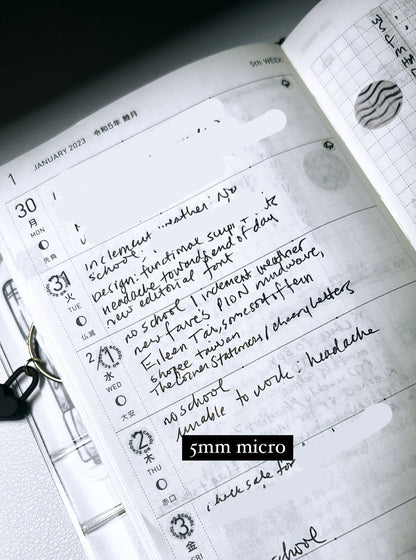 1 JANUARY 2023 令和5年 睦月 5th WEEK
30
月
MON
先負
31
火
TUE
仏滅
inclement weather: No
school
Design: functional
headache toward end of day
new editorial font
2/1
水
WED
大安
no school / inclement weather
new fave's PLON mindwave,
Eileen Tai, some sort of fern
shopee taiwan
The Corner Stationers / cheery letters
2
木
THU
赤口
no school
unable to work: headache
5mm micro
3
金
FRI
check sale for
school